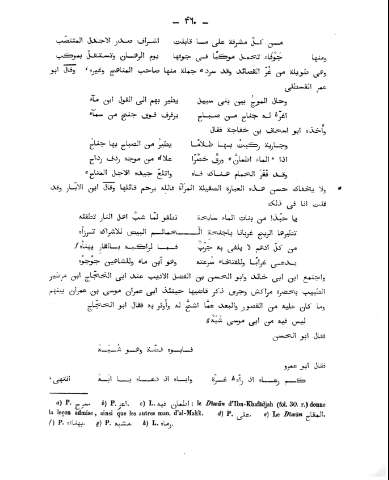 — ٤٦٠ —
من كلّ مشرفة على ما قابلت اشراف صدر الاجفل المنتصب
ومنها جوفاء تحمل موكبًا فى جوفها يوم الرهان وتستقلّ بموكب
وهى طويلة من غرّ القصائد وقد سرد جملة منها صاحب المناهج وغيره، وقال ابو
عمر القسطلى
وحال الموج بين بنى سبيل يطير بهم الى الغول ابن ماء
اغرّ له جناح من صباح يرفرف فوق جنح من سماء
وأخذه ابو اسحاق بن خفاجة فقال
وجارية ركبت بها ظلاما يطير من الصباح بها جناح
اذا الماء اطمأنّ ورقّ خصرًا علا من موجه ردف رداح
وقد فغر الحمام هناك فاه واتلع جيده الاجل المتاح
ولا يخفاك حسن هذه العبارة الصقيلة المرآة فالله يرحم قائلها وقال ابن الأبار وقد
قلت انا فى ذلك
يا حبّذا من بنات الماء سابحة تطفو لما شبّ اهل النار تطفئه
تطيرها الريح غربانا باجنحة الحمائم البيض للاشراك ترزأه
من كلّ ادهم لا يلفى به جرب فما لراكبه بالقار يهنؤه
يدعى غرابا وللفتخاء سرعته وهو ابن ماء وللشاهين جؤجؤه
واجتمع ابن ابى خالد وابو الحسن بن الفضل الاديب عند ابى الحجّاج ابن مرطير
الطبيب بحضرة مراكش وجرى ذكر قاضيها حينئذ ابى عمران موسى بن عمران بينهم
وما كان عليه من القصور والبعد عمّا اتيح له وأوثر به فقال ابو الحجّاج
ليس فيه من ابى موسى شبه
فقال ابو الحسن
فابوه فضّة وهو شبه
فقال ابو عمرو
كم دعاه اذ رآه عرّة واباه اذ دعاه يا ابه انتهى،
a) P. b) P. c) L. اطمأن فيه; le Dîwân d'Ibn-Khafâdjah (fol. 30. r.) donne
la leçon admise, ainsi que les autres man. d'al-Makk. d) P. على. e) Le Dîwân
f) P. g) P. h) L.